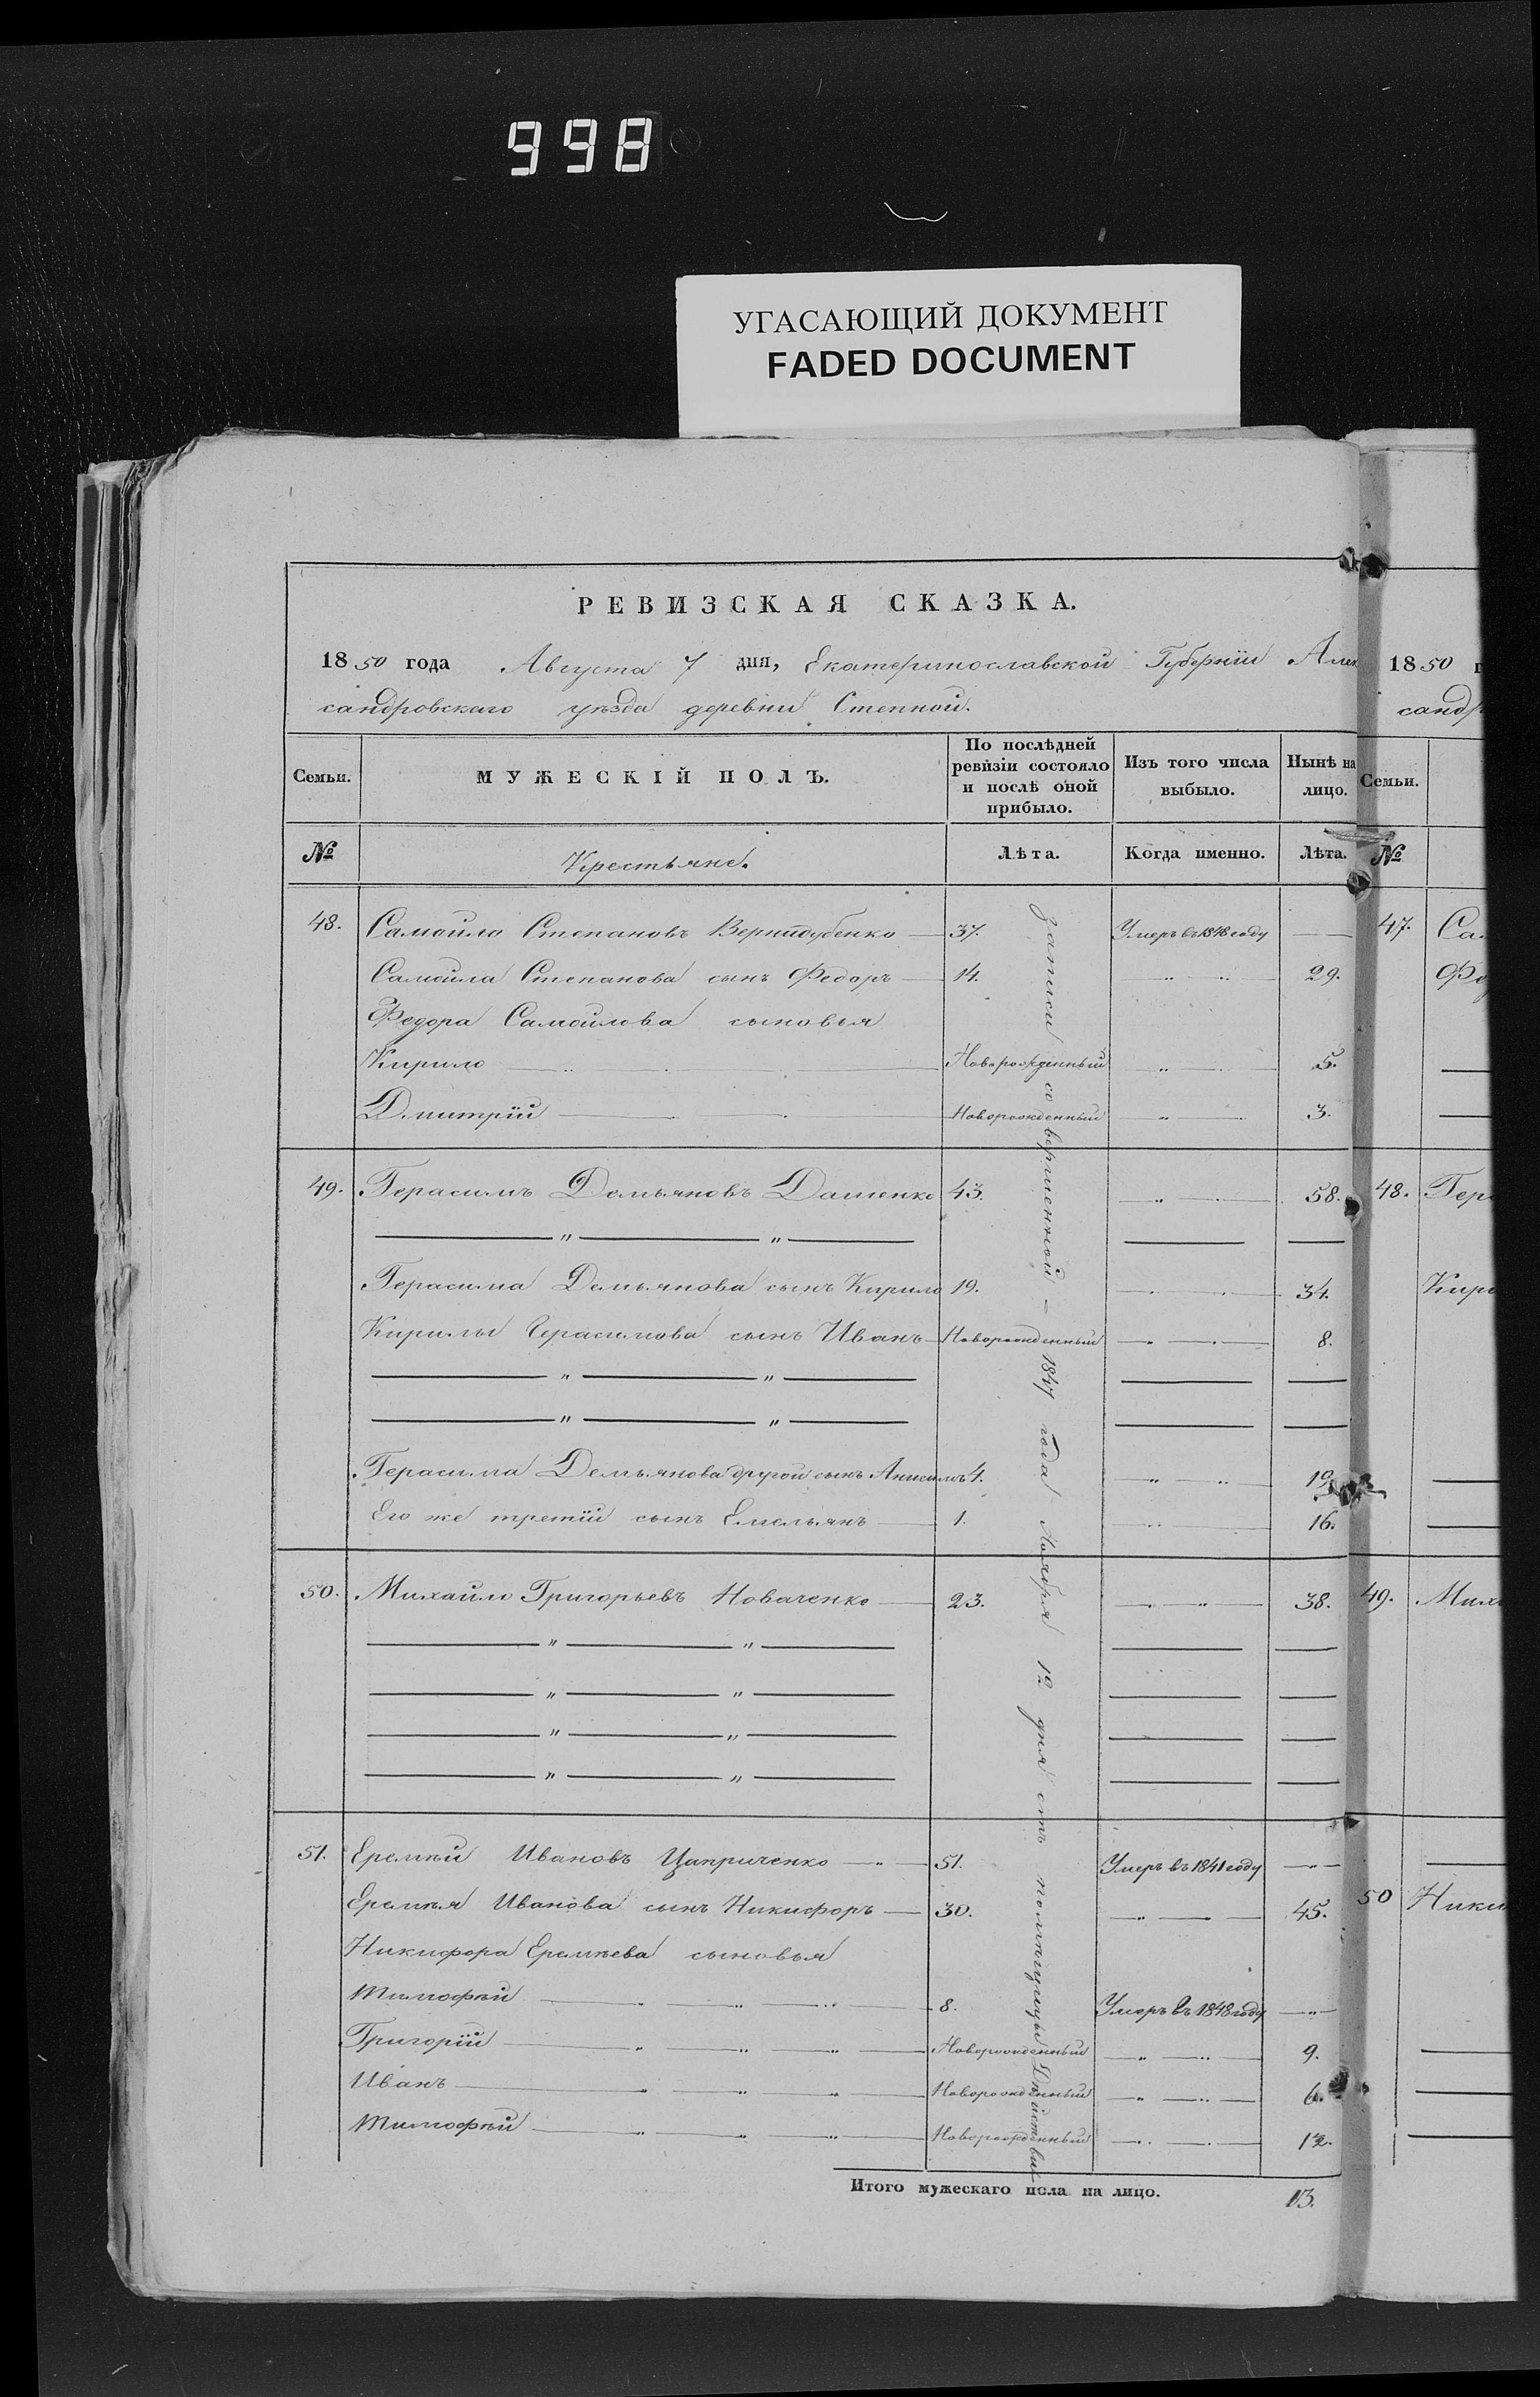 998
УГАСАЮЩИЙ ДОКУМЕНТ
FADED DOCUMENT
РЕВИЗСКАЯ СКАЗКА.
1850 года Августа 7 дня, Екатеринославской Губерніи Алек
сандровскаго уѣзда деревни Степной.
Семьи. МУЖЕСКІЙ ПОЛЪ. По послѣдней ревизіи состояло и послѣ оной прибыло. Изъ того числа выбыло. Нынѣ на лицо.
№ Крестьяне. Лѣта. Когда именно. Лѣта.
48. Самойло Степановъ 37. Умеръ въ 1848 году
Самойла Степанова сынъ Федоръ 14. 29.
Федора Самойлова сыновья
Кирило Новорожденный 5.
Дмитрій Новорожденный 3.
49. Герасимъ Демьяновъ Дашенко 43. 58.
Герасима Демьянова сынъ Кирило 19. 34.
Кирилы Герасимова сынъ Иванъ Новорожденный 8.
Герасима Демьянова другой сынъ Анисимъ 4. 19.
Его же третій сынъ Емельянъ 1. 16.
50. Михайло Григорьевъ Новаченко 23. 38.
51. Еремѣй Ивановъ Цаприченко 51. Умеръ въ 1841 году
Еремѣя Иванова сынъ Никифоръ 30. 45.
Никифора Еремѣева сыновья
Тимофѣй 8. Умеръ въ 1848 году
Григорій Новорожденный 9.
Иванъ Новорожденный 6.
Тимофѣй Новорожденный 1½.
Итого мужескаго пола на лицо. 13.
записи совершенной 1847 года Ноября 12 дня отъ
1850 г
сандр
Семьи.
№
47. Сам
Фед
48. Гера
Кири
49. Миха
50 Ники